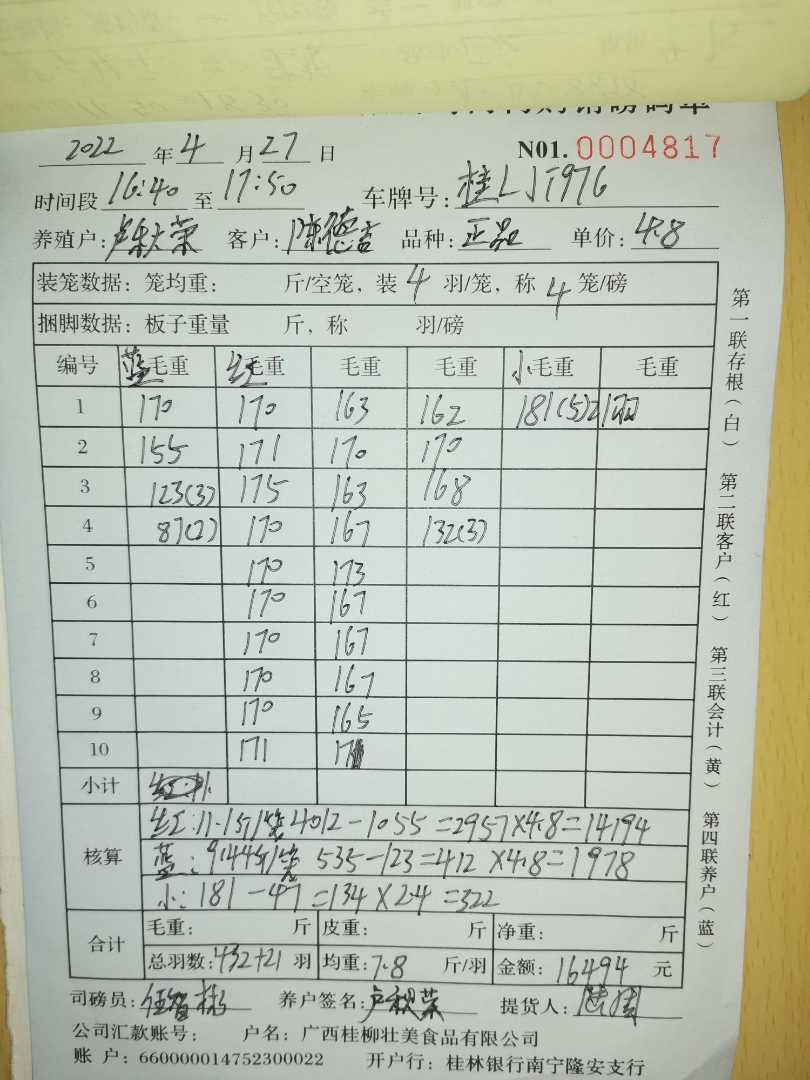 2022 年 4 月 27 日 N01. 0004817
时间段 16:40 至 17:50 车牌号: 桂LJT976
养殖户: 卢秋荣 客户: 陈德吉 品种: 正品 单价: 4.8
装笼数据: 笼均重: 斤/空笼, 装 4 羽/笼, 称 4 笼/磅
捆脚数据: 板子重量 斤, 称 羽/磅
编号 蓝毛重 红毛重 毛重 毛重 小毛重 毛重
1 170 170 163 162 181(5)21羽
2 155 171 170 170
3 123(3) 175 163 168
4 87(2) 170 167 132(3)
5 170 173
6 170 167
7 170 167
8 170 167
9 170 165
10 171
小计
核算
红:11.1斤/笼 4012-1055=2957×4.8=14194
蓝:9.44斤/笼 535-123=412×4.8=1978
小:181-47=134×2.4=322
合计
毛重: 斤 皮重: 斤 净重: 斤
总羽数:432+21 羽 均重:7.8 斤/羽 金额:16494 元
司磅员: 养户签名: 卢秋荣 提货人:
公司汇款账号: 户名: 广西桂柳壮美食品有限公司
账 户: 660000014752300022 开户行: 桂林银行南宁隆安支行
第一联存根(白) 第二联客户(红) 第三联会计(黄) 第四联养户(蓝)